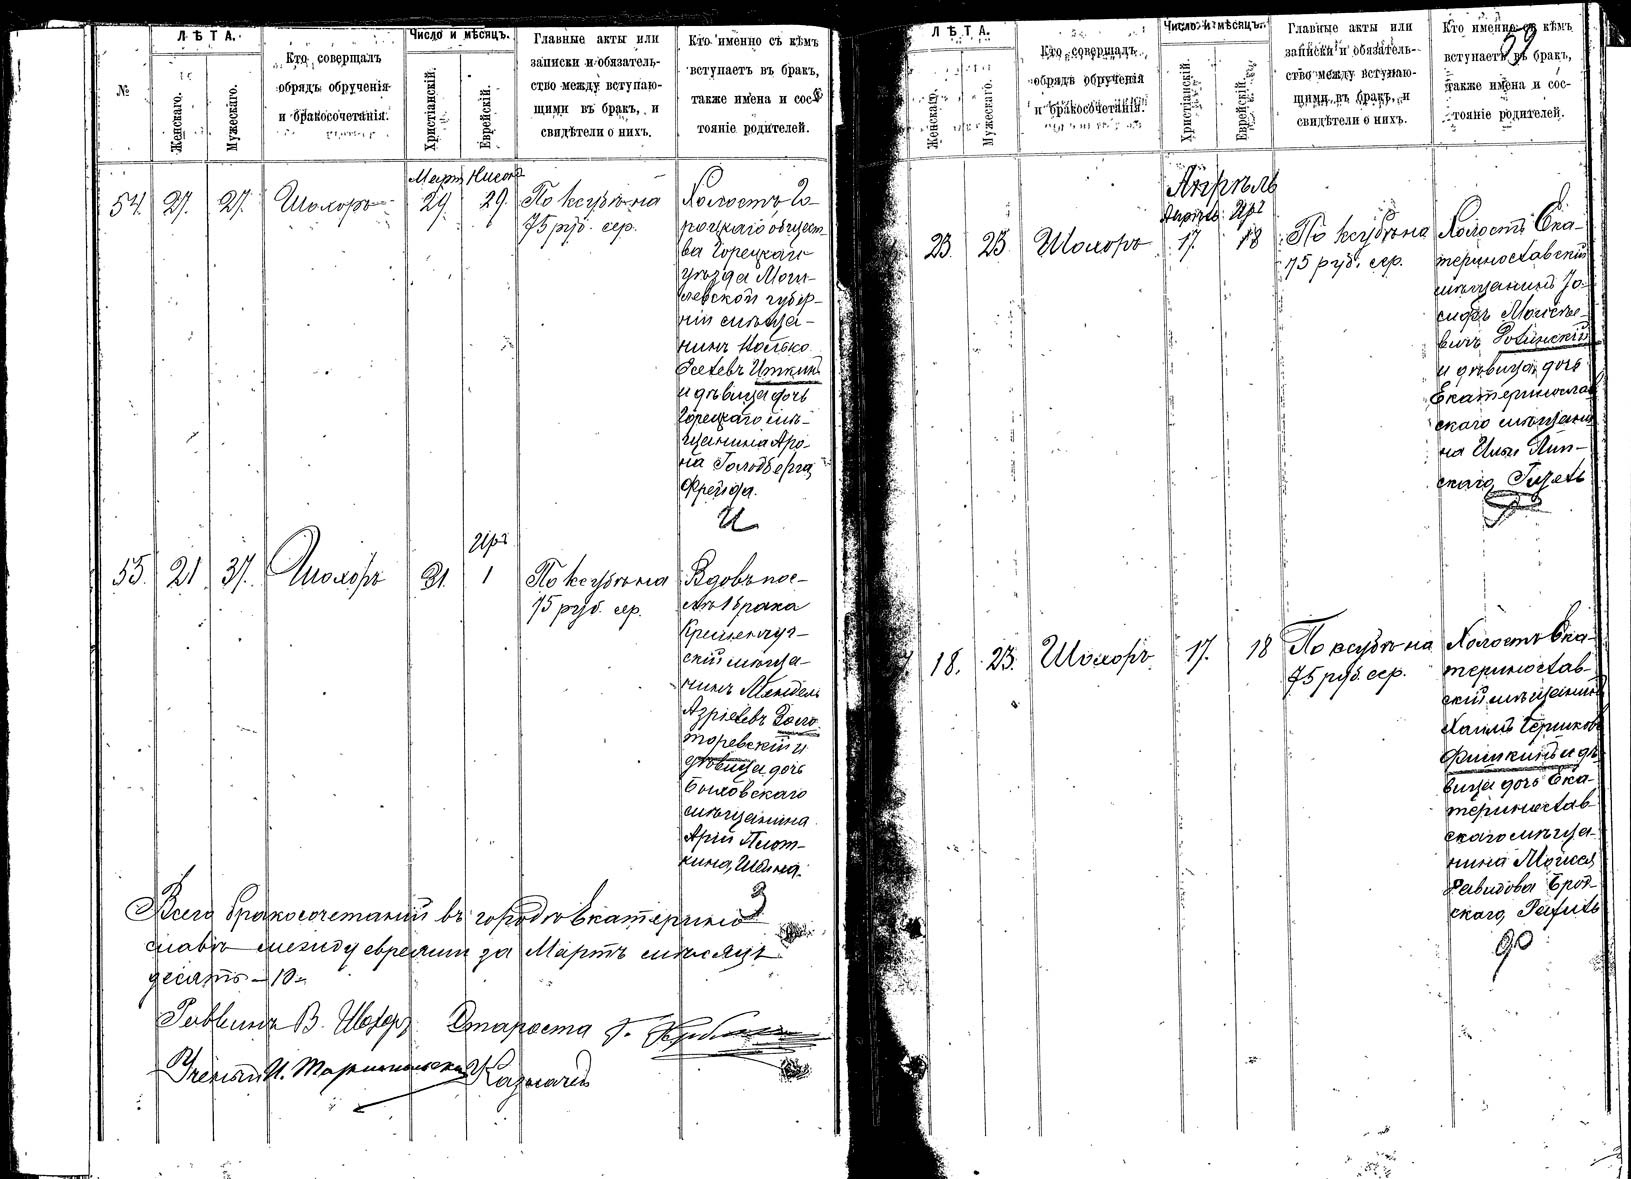 №
ЛѢТА.
Женскаго.
Мужескаго.
Кто совершалъ
обрядъ обрученія
и бракосочетанія.
Число и мѣсяцъ.
Христіанскій.
Еврейскій.
Главные акты или
записки и обязатель-
ство между вступаю-
щими въ бракъ, и
свидѣтели о нихъ.
Кто именно съ кѣмъ
вступаетъ въ бракъ,
также имена и сос-
тояніе родителей.
54. 27. 27. Шохоръ
Мартъ 29. Нисона 29.
По ксубѣ на
75 руб. сер.
Холостъ Го-
рецкаго общест-
ва Горецкаго
уѣзда Моги-
левской губер-
ніи мѣща-
нинъ
Иткинъ
и дѣвица дочь
Горецкаго мѣ-
щанина Аро-
на Гольдберга,
Фрейда.
55. 21 37. Шохоръ 31. Иръ 1
По ксубѣ на
75 руб. сер.
Вдовъ пос-
лѣ 1 брака
Кременчуг-
скій мѣща-
нинъ Мендель
Азріелевъ Золо-
торевскій и
дѣвица дочь
Быховскаго
мѣщанина
Арій Плот-
кина, Шейна.
3
Всего бракосочетаній въ городѣ Екатерино
славѣ между евреями за Мартъ мѣсяцъ
десять – 10 –
Раввинъ В. Шохоръ Староста Г.
Ученый И. Казначей
ЛѢТА.
Женскаго.
Мужескаго.
Кто совершалъ
обрядъ обрученія
и бракосочетанія.
Число и мѣсяцъ.
Христіанскій.
Еврейскій.
Главные акты или
записки и обязатель-
ство между вступаю-
щими въ бракъ, и
свидѣтели о нихъ.
Кто именно съ кѣмъ
вступаетъ въ бракъ,
также имена и сос-
тояніе родителей.
59
Апрѣль
Апрѣль Иръ
23. 25. Шохоръ 17. 18
По ксубѣ на
75 руб. сер.
Холостъ Ека-
теринославскій
мѣщанинъ Іо-
сифъ Моисѣе-
вичъ
и дѣвица, дочь
Екатеринослав
скаго мѣщани
на Ильи Лип-
скаго, Гизель
18. 23. Шохоръ 17. 18
По ксубѣ на
75 руб. сер.
Холостъ Ека-
теринослав-
скій мѣщанинъ
Хаимъ Гершковъ
Фишкинъ и дѣ-
вица дочь Ека-
теринослав-
скаго мѣща-
нина Моисея
Давидова Брод-
скаго, Рахиль